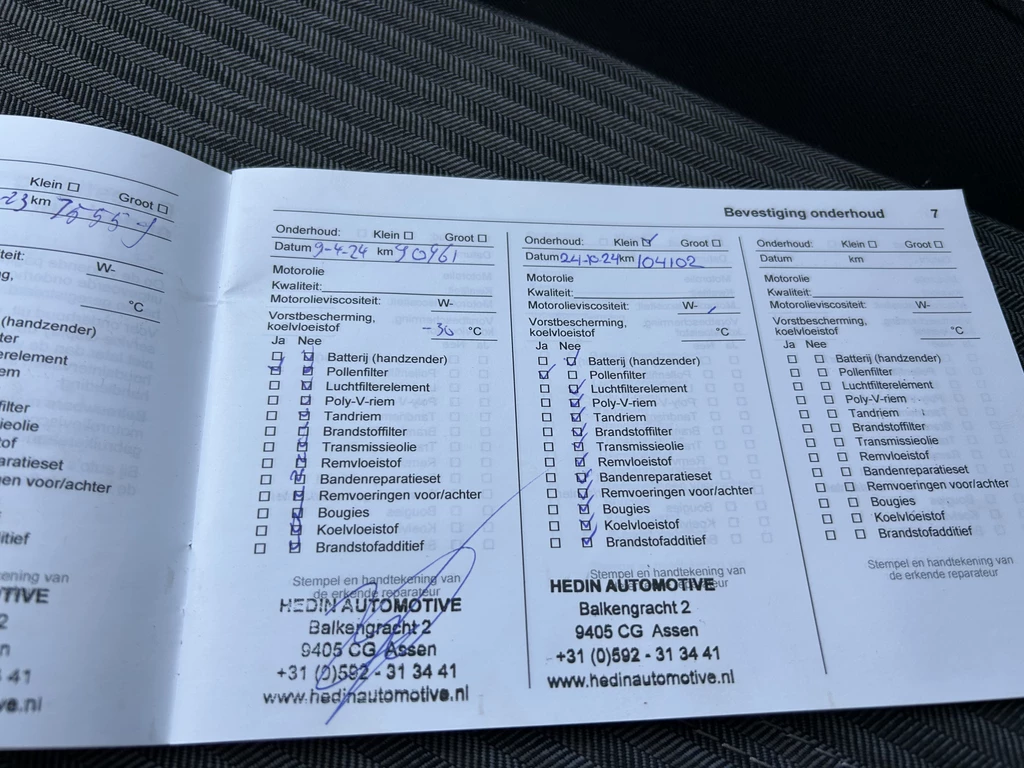 Klein ☐ Groot ☐
-23 km 75559
teit:
W-
g,
°C
(handzender)
ter
erelement
em
filter
ieolie
of
aratieset
gen voor/achter
itief
kening van
TIVE
2
n
41
ve.nl
Bevestiging onderhoud 7
Onderhoud: Klein ☐ Groot ☐
Datum 9-4-24 km 90961
Motorolie
Kwaliteit:
Motorolieviscositeit: W-
Vorstbescherming,
koelvloeistof -30 °C
Ja Nee
Batterij (handzender)
Pollenfilter
Luchtfilterelement
Poly-V-riem
Tandriem
Brandstoffilter
Transmissieolie
Remvloeistof
Bandenreparatieset
Remvoeringen voor/achter
Bougies
Koelvloeistof
Brandstofadditief
Stempel en handtekening van
de erkende reparateur
HEDIN AUTOMOTIVE
Balkengracht 2
9405 CG Assen
+31 (0)592 - 31 34 41
www.hedinautomotive.nl
Onderhoud: Klein ☑ Groot ☐
Datum 24-10-24 km 104102
Motorolie
Kwaliteit:
Motorolieviscositeit: W-
Vorstbescherming,
koelvloeistof °C
Ja Nee
Batterij (handzender)
Pollenfilter
Luchtfilterelement
Poly-V-riem
Tandriem
Brandstoffilter
Transmissieolie
Remvloeistof
Bandenreparatieset
Remvoeringen voor/achter
Bougies
Koelvloeistof
Brandstofadditief
Stempel en handtekening van
de erkende reparateur
HEDIN AUTOMOTIVE
Balkengracht 2
9405 CG Assen
+31 (0)592 - 31 34 41
www.hedinautomotive.nl
Onderhoud: Klein ☐ Groot ☐
Datum km
Motorolie
Kwaliteit:
Motorolieviscositeit: W-
Vorstbescherming,
koelvloeistof °C
Ja Nee
Batterij (handzender)
Pollenfilter
Luchtfilterelement
Poly-V-riem
Tandriem
Brandstoffilter
Transmissieolie
Remvloeistof
Bandenreparatieset
Remvoeringen voor/achter
Bougies
Koelvloeistof
Brandstofadditief
Stempel en handtekening van
de erkende reparateur